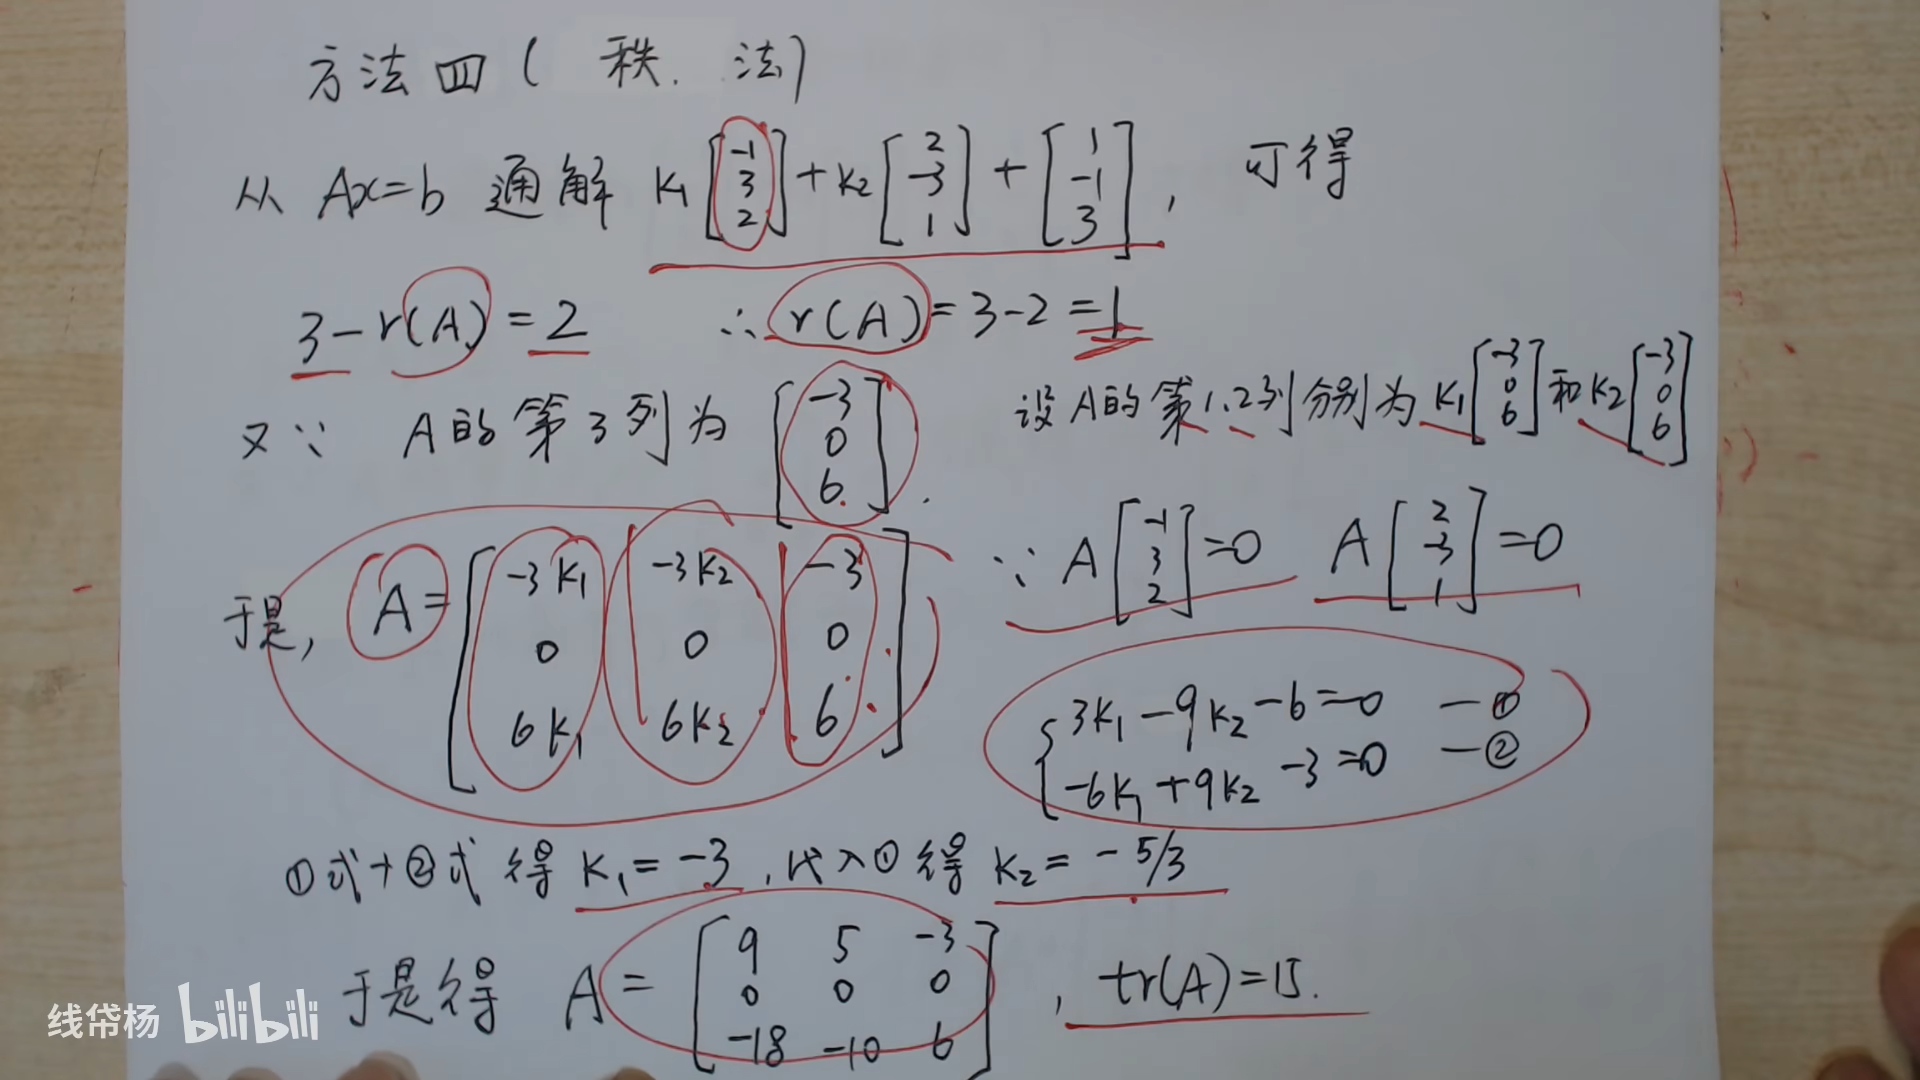 方法四( 秩. 法)
从 Ax=b 通解 K₁[-1 3 2]+K₂[2 -3 1]+[1 -1 3], 可得
3-r(A)=2 ∴r(A)=3-2=1
又∵ A的第3列为[-3 0 6]. 设A的第1、2列分别为K₁[-3 0 6]和K₂[-3 0 6]
于是, A=[-3K₁ -3K₂ -3
0 0 0
6K₁ 6K₂ 6]
∵A[-1 3 2]=0 A[2 -3 1]=0
{3K₁-9K₂-6=0 —①
-6K₁+9K₂-3=0 —②
①式+②式得K₁=-3,代入①得K₂=-5/3
于是得 A=[9 5 -3
0 0 0
-18 -10 6], tr(A)=15.
线帒杨 bilibili